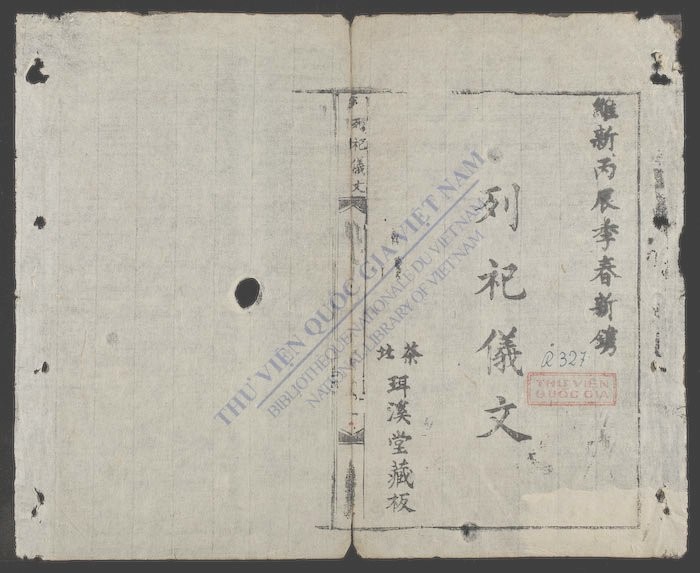 維新丙辰季春新鐫
列祀儀文
茶
社
珥溪堂藏板
列祀儀文
R 327
THƯ VIỆN
QUỐC GIA
THƯ VIỆN QUỐC GIA VIỆT NAM
BIBLIOTHÈQUE NATIONALE DU VIETNAM
NATIONAL LIBRARY OF VIETNAM